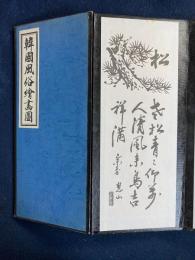 韓國風俗繪畵圖
松
老松青々仰万
人清風来鳥吉
祥满